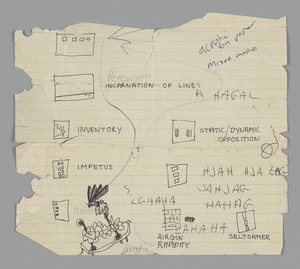 acrylic
on paper
mixed media
Percussion
INCARNATION OF LINES
A HAGAL
INVENTORY
STATIC/DYNAMIC
OPPOSITION
IMPETUS
HJAH HJA
JAHJAG
LGHAHA
HAHAG
AHAHA
RAPIDITY
SELTSAMER
acrylic